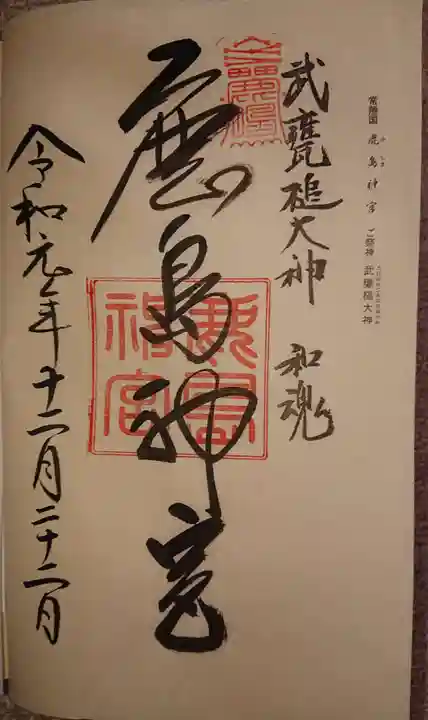 常陸国 鹿島神宮 ご祭神 武甕槌大神
かしま
武甕槌大神 和魂
鹿島神宮
鹿島神宮
令和元年十二月二十二日